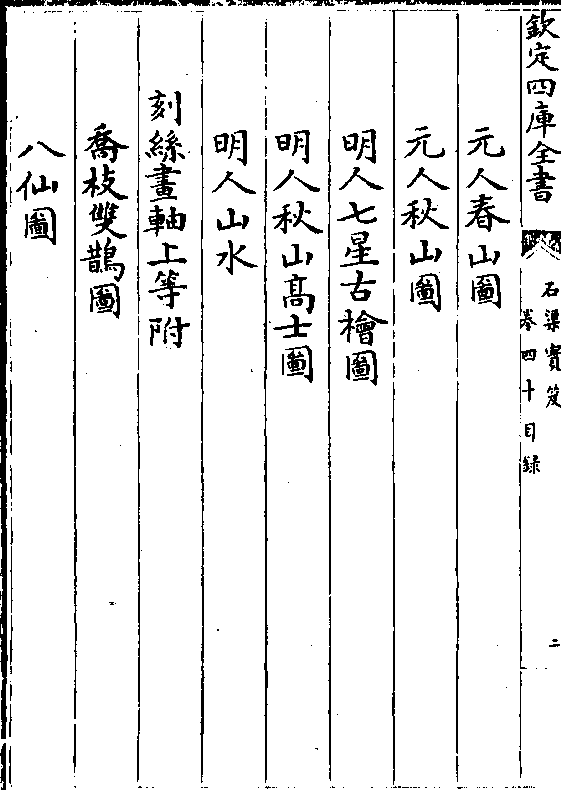 欽定四庫全書
石渠寶笈
卷四十目錄
二
元人春山圖
元人秋山圖
明人七星古檜圖
明人秋山高士圖
明人山水
刻絲畫軸上等附
喬枝雙鵲圖
八仙圖